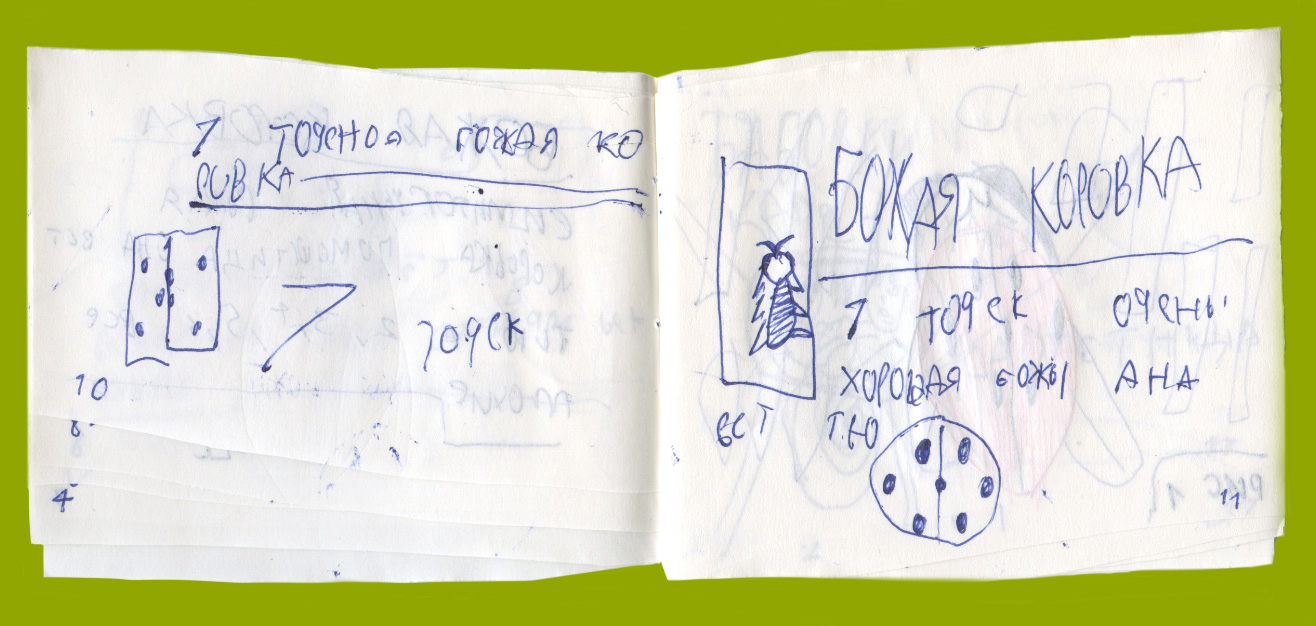 7 ТОЧЕНОЯ БОЖАЯ КО
РОВКА
7 ТОЧЕК
10
8
4
БОЖАЯ КОРОВКА
7 ТОЧЕК ОЧЕНЫ
ХОРОШАЯ БОЖЫ АНА
ЕСТ ТЛЮ
11